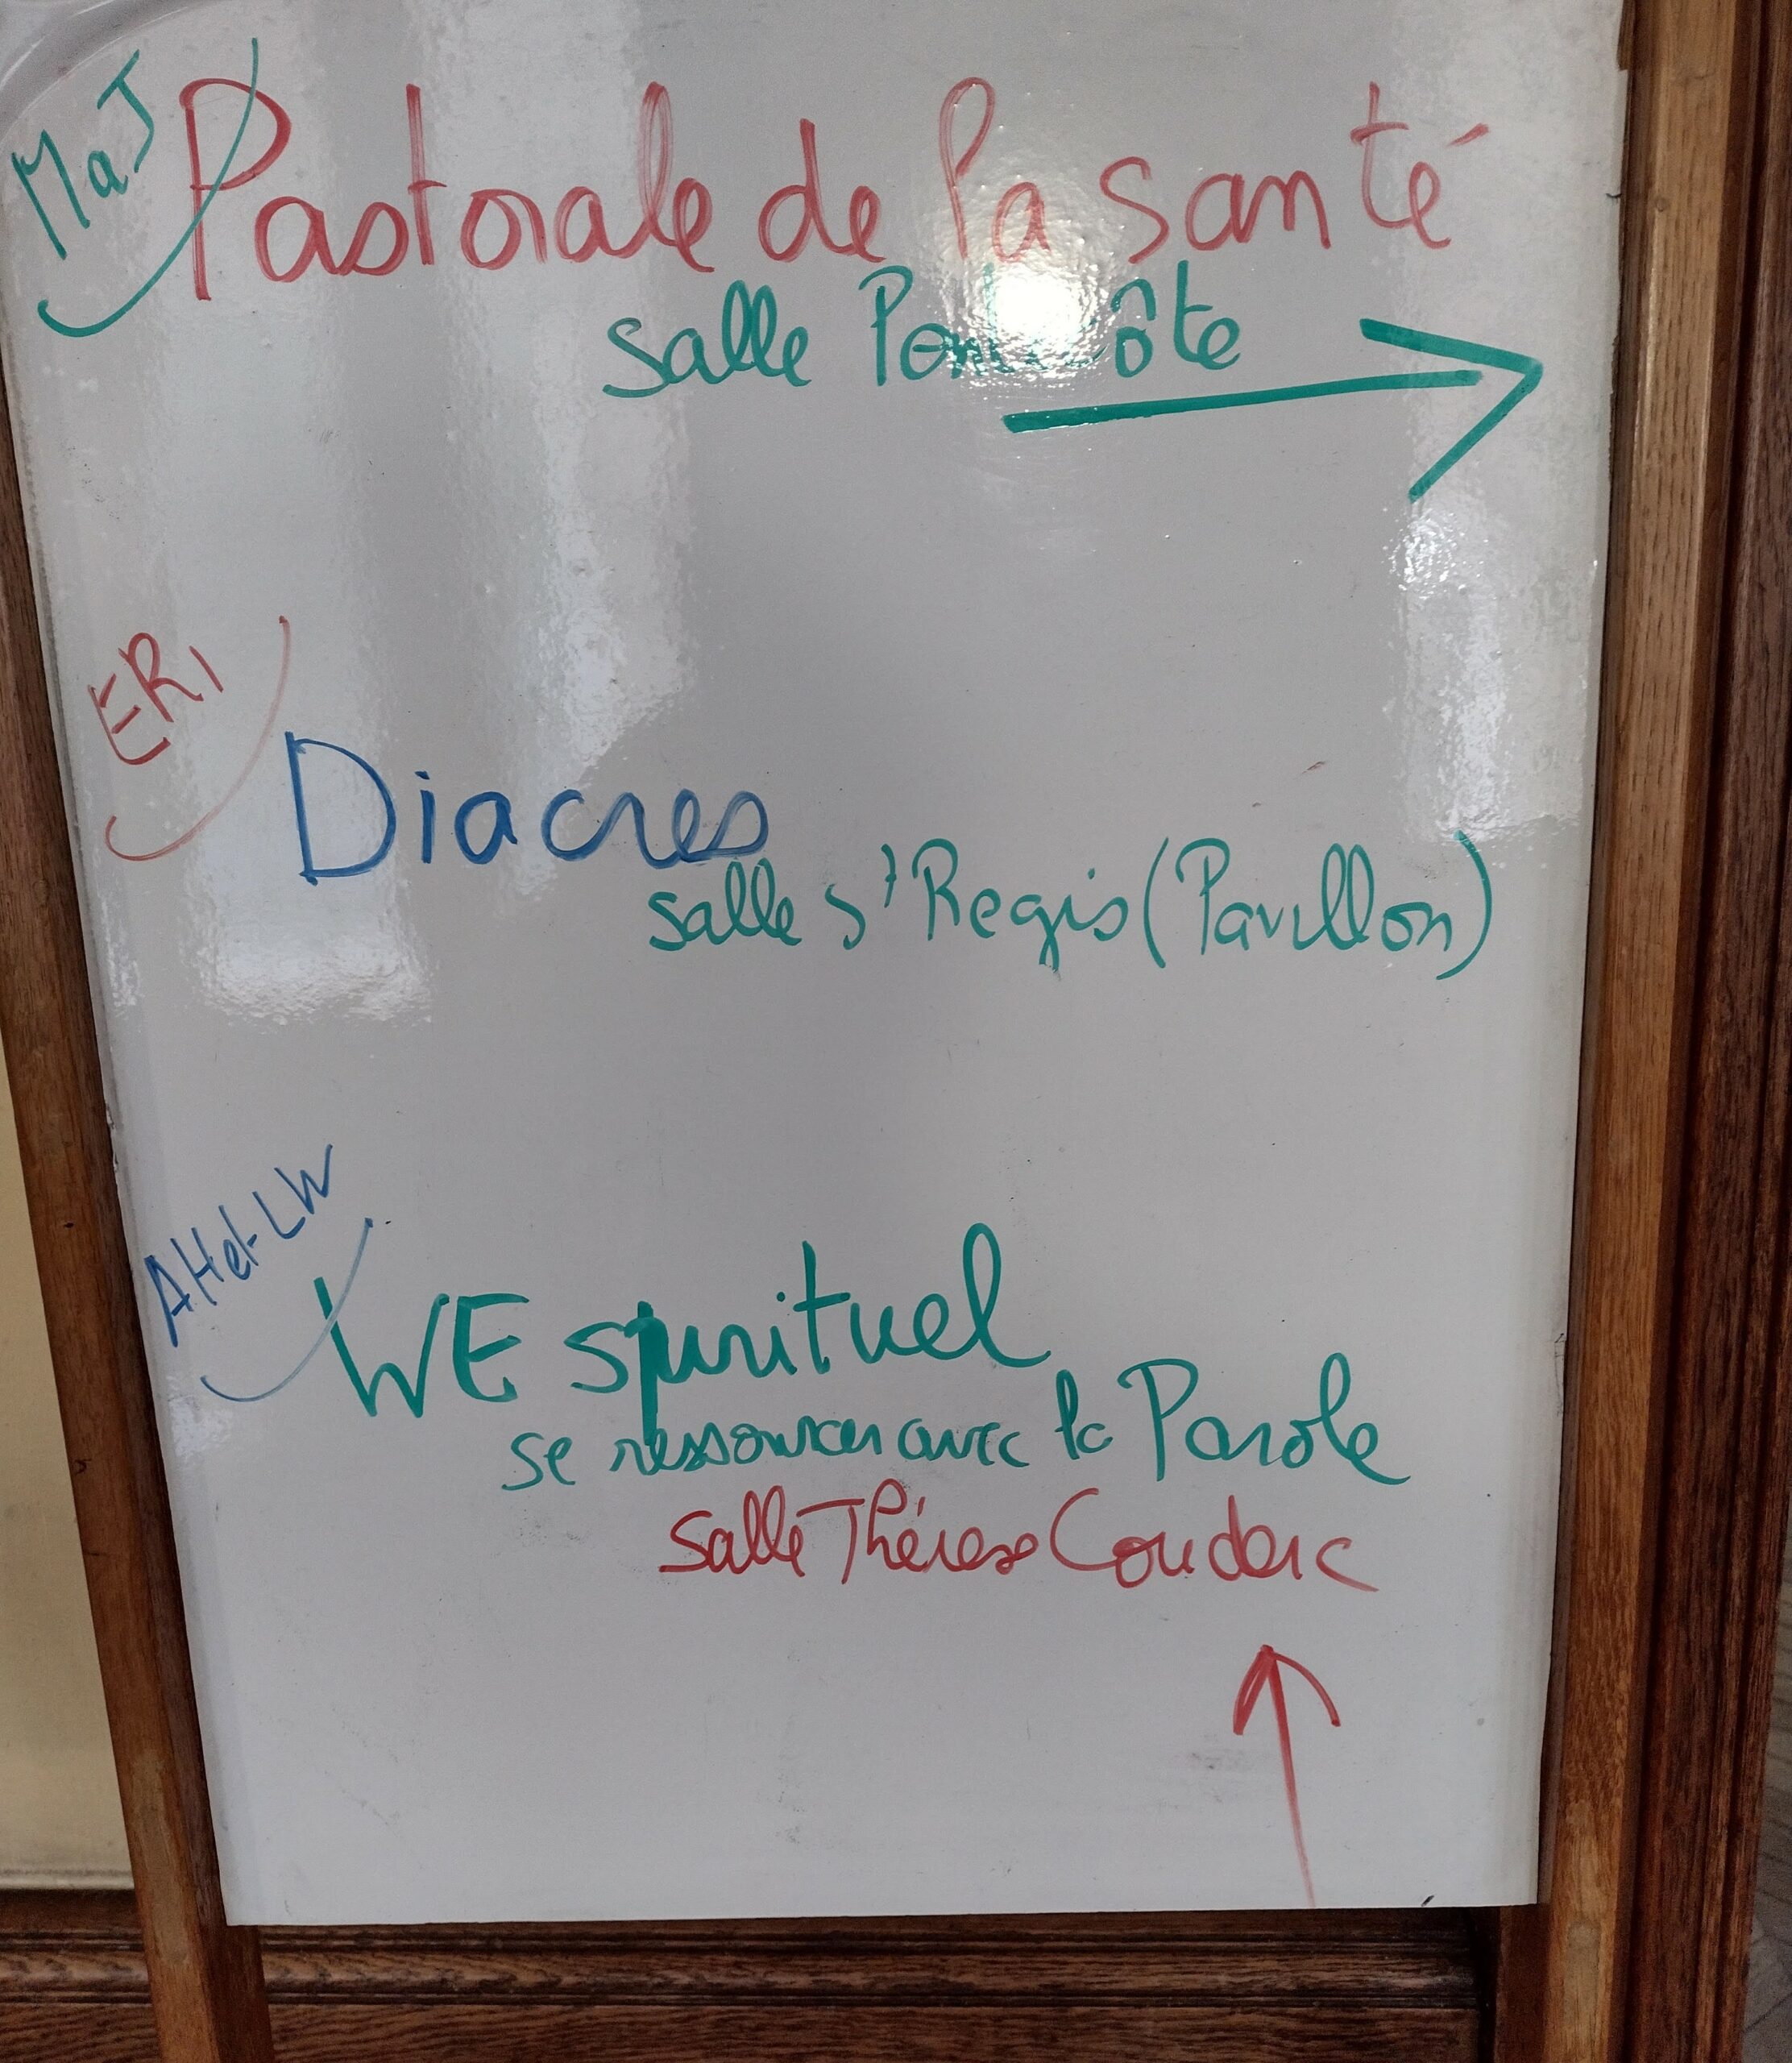 MaJ
Pastorale de la santé
salle Pentecôte
ERI
Diacres
salle St Regis (Pavillon)
AH et LW
WE spirituel
se ressourcer avec la Parole
salle Thérèse Couderc